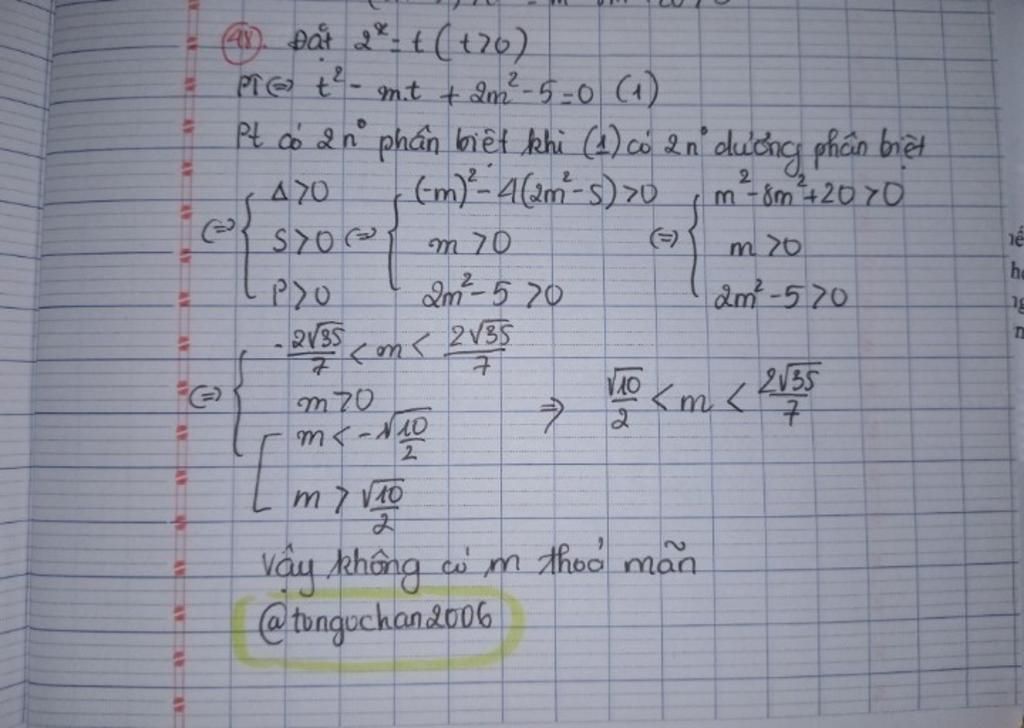 48. Đặt 2^x = t (t>0)
PT⇔ t² - m.t + 2m² - 5 = 0 (1)
Pt có 2 n° phân biệt khi (1) có 2 n° dương phân biệt
⇔ { Δ>0 ⇔ { (-m)² - 4(2m² - 5) >0 ⇔ { m² - 8m² + 20 >0
S>0 m >0 m >0
P>0 2m² - 5 >0 2m² - 5 >0
⇔ { -2√35/7 < m < 2√35/7
m >0 ⇒ √10/2 < m < 2√35/7
[ m < -√10/2
m > √10/2
Vậy không có m thoả mãn
@tongochan2006